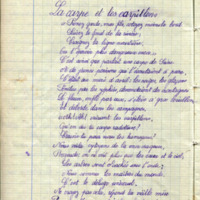 La carpe et les carpillons
Prenez garde, mes fils, côtoyez moins le bord
Suivez le fond de la rivière
Craignez la ligne meurtrière
Ou l'épervier plus dangereux encor
C'est ainsi que parlait une carpe de Seine
A de jeunes poissons qui l'écoutaient à peine
C'était au mois d'avril les neiges, les glaçons
Fondus par les zéphirs descendaient des montagnes
Le fleuve enflé par eux s'élève à gros bouillons
Et déborde dans les campagnes
Ah! Ah! criaient les carpillons
Qu'en dis-tu carpe radoteuse?
Crains-tu pour nous les hameçons?
Nous voilà citoyens de la mer orageuse
Regarde on ne voit plus que les eaux et le ciel
Les arbres sont cachés sous l'onde
Nous sommes les maîtres du monde
C'est le déluge universel
Ne croyez pas cela, répond la vieille mère